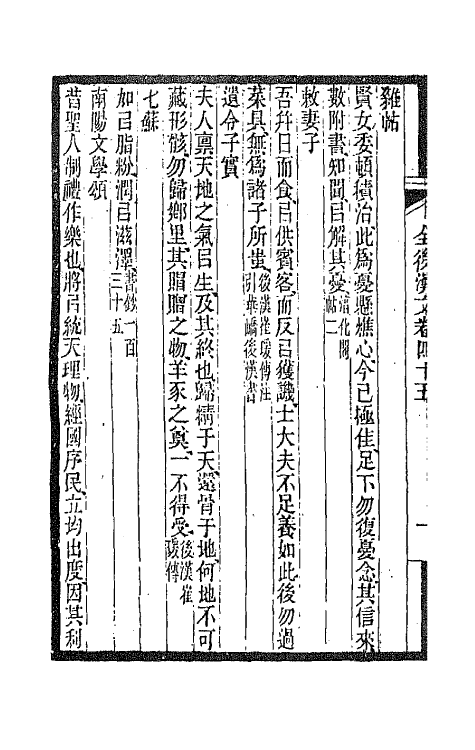 雜帖
賢女委頓積治此爲憂懸樵心今已極佳足下勿復憂念其信來
數附書知聞㠯解其憂淳化閣帖二
敕妻子
吾幷日而食㠯供賓客而反㠯獲譏士大夫不足養如此後勿過
菜具無爲諸子所蚩後漢崔瑗傳注引華嶠後漢書
遺令子實
夫人稟天地之氣㠯生及其終也歸精于天還骨于地何地不可
藏形骸勿歸鄉里其賵贈之物羊豕之奠一不得受後漢崔瑗傳
七蘇
加㠯脂粉潤㠯滋澤書鈔一百三十五
南陽文學頌
昔聖人制禮作樂也將㠯統天理物經國序民立均出度因其利
全後漢文卷四十五
一